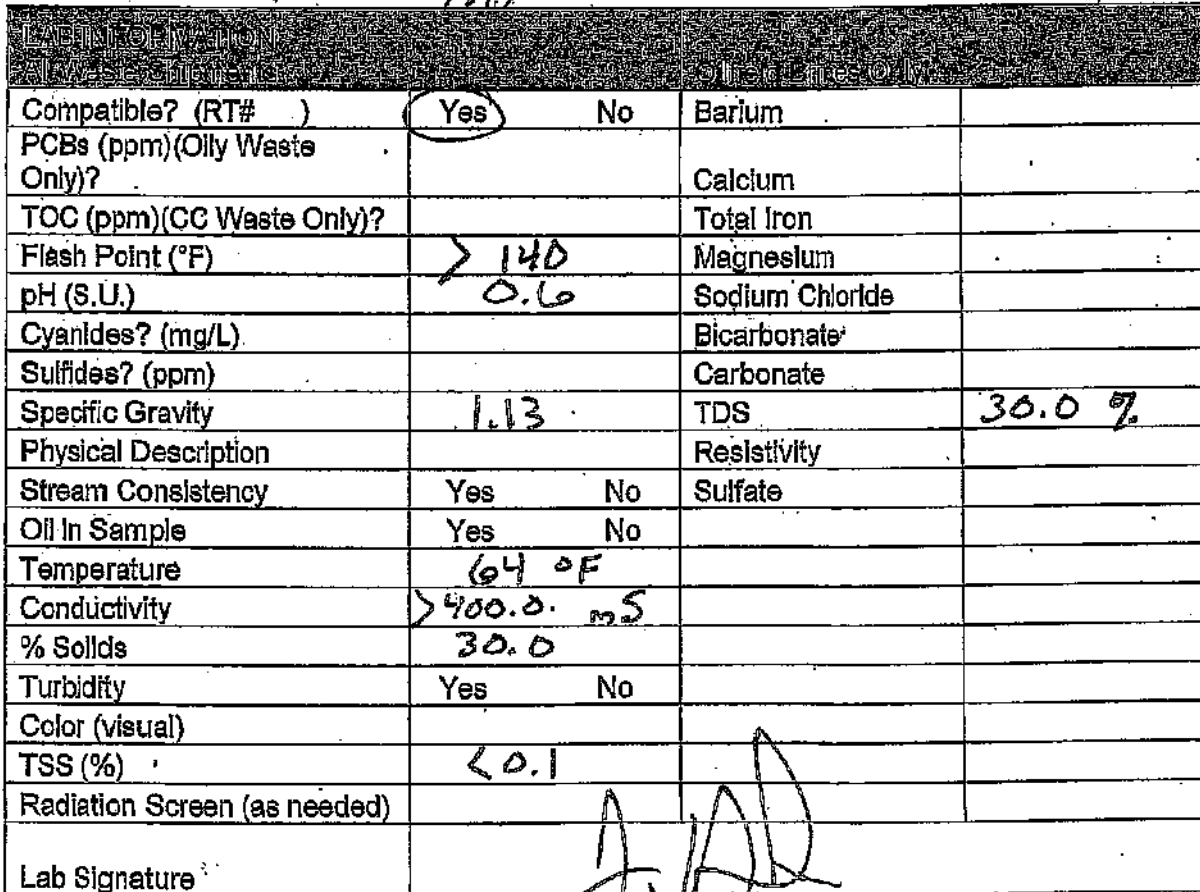 LAB INFORMATION
All Waste Shipments Oilfield Brines Only
Compatible? (RT# ) Yes No Barium
PCBs (ppm)(Oily Waste
Only)? Calcium
TOC (ppm)(CC Waste Only)? Total Iron
Flash Point (°F) > 140 Magnesium
pH (S.U.) 0.6 Sodium Chloride
Cyanides? (mg/L) Bicarbonate
Sulfides? (ppm) Carbonate
Specific Gravity 1.13 TDS 30.0 %
Physical Description Resistivity
Stream Consistency Yes No Sulfate
Oil In Sample Yes No
Temperature 64 °F
Conductivity >400.0. mS
% Solids 30.0
Turbidity Yes No
Color (visual)
TSS (%) <0.1
Radiation Screen (as needed)
Lab Signature